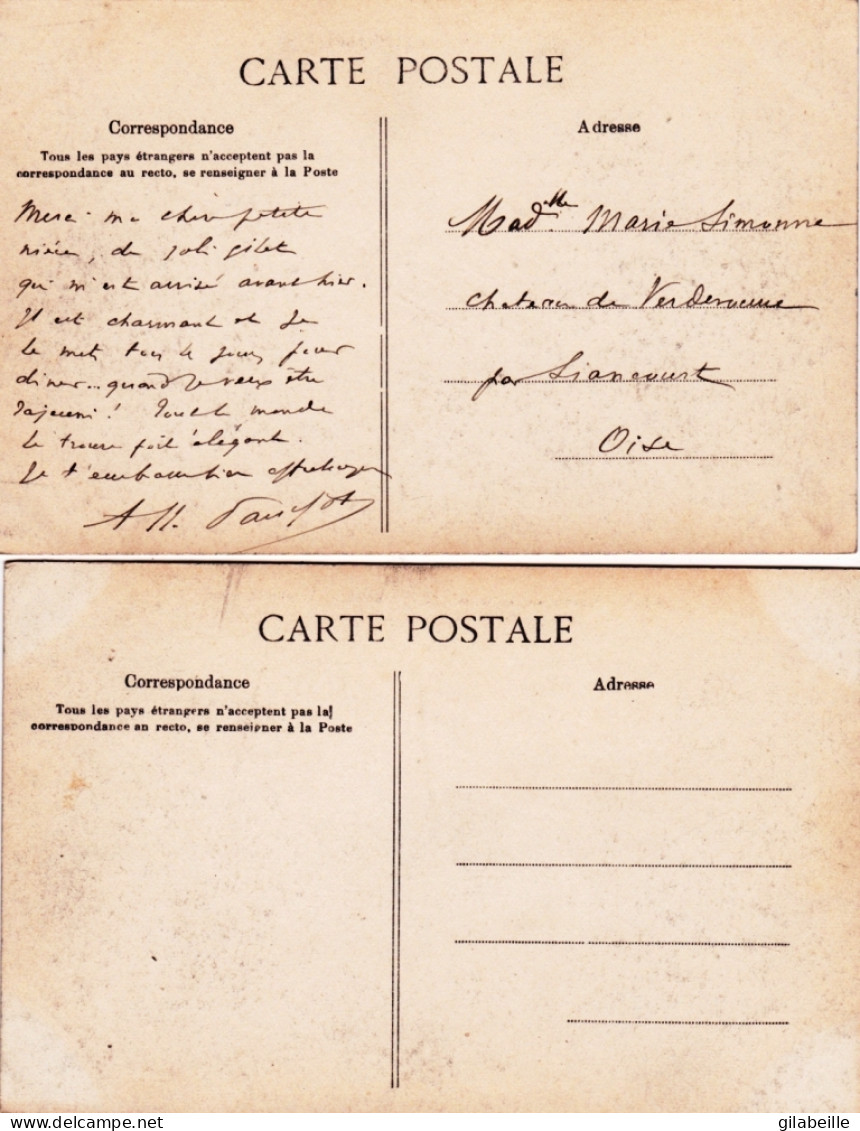 CARTE POSTALE
Correspondance
Tous les pays étrangers n'acceptent pas la
correspondance au recto, se renseigner à la Poste
Merci ma chère petite
nièce, du joli gilet
qui m'est arrivé avant hier.
Il est charmant et je
le mets tous les jours pour
diner.. quand je veux être
rajeuni! Tout le monde
le trouve fort élégant.
Je t'embrasse bien
Adresse
Madelle Marie Simonne
chateau de Verderonne
par Liancourt
Oise
CARTE POSTALE
Correspondance
Tous les pays étrangers n'acceptent pas la
correspondance au recto, se renseigner à la Poste
Adresse
gilabeille